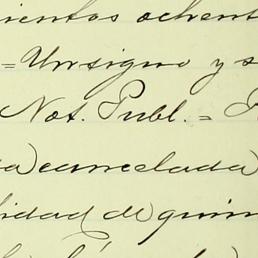 cientos ochent
= Un signo y s
Not. Publ. =
a cancelada
lidad de quin